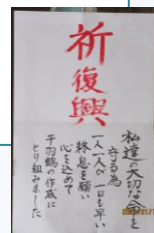 祈
復興
私達の大切な命を
守る為
一人一人が一日も早い
終息を願い
心を込めて
千羽鶴の作成に
とり組みました